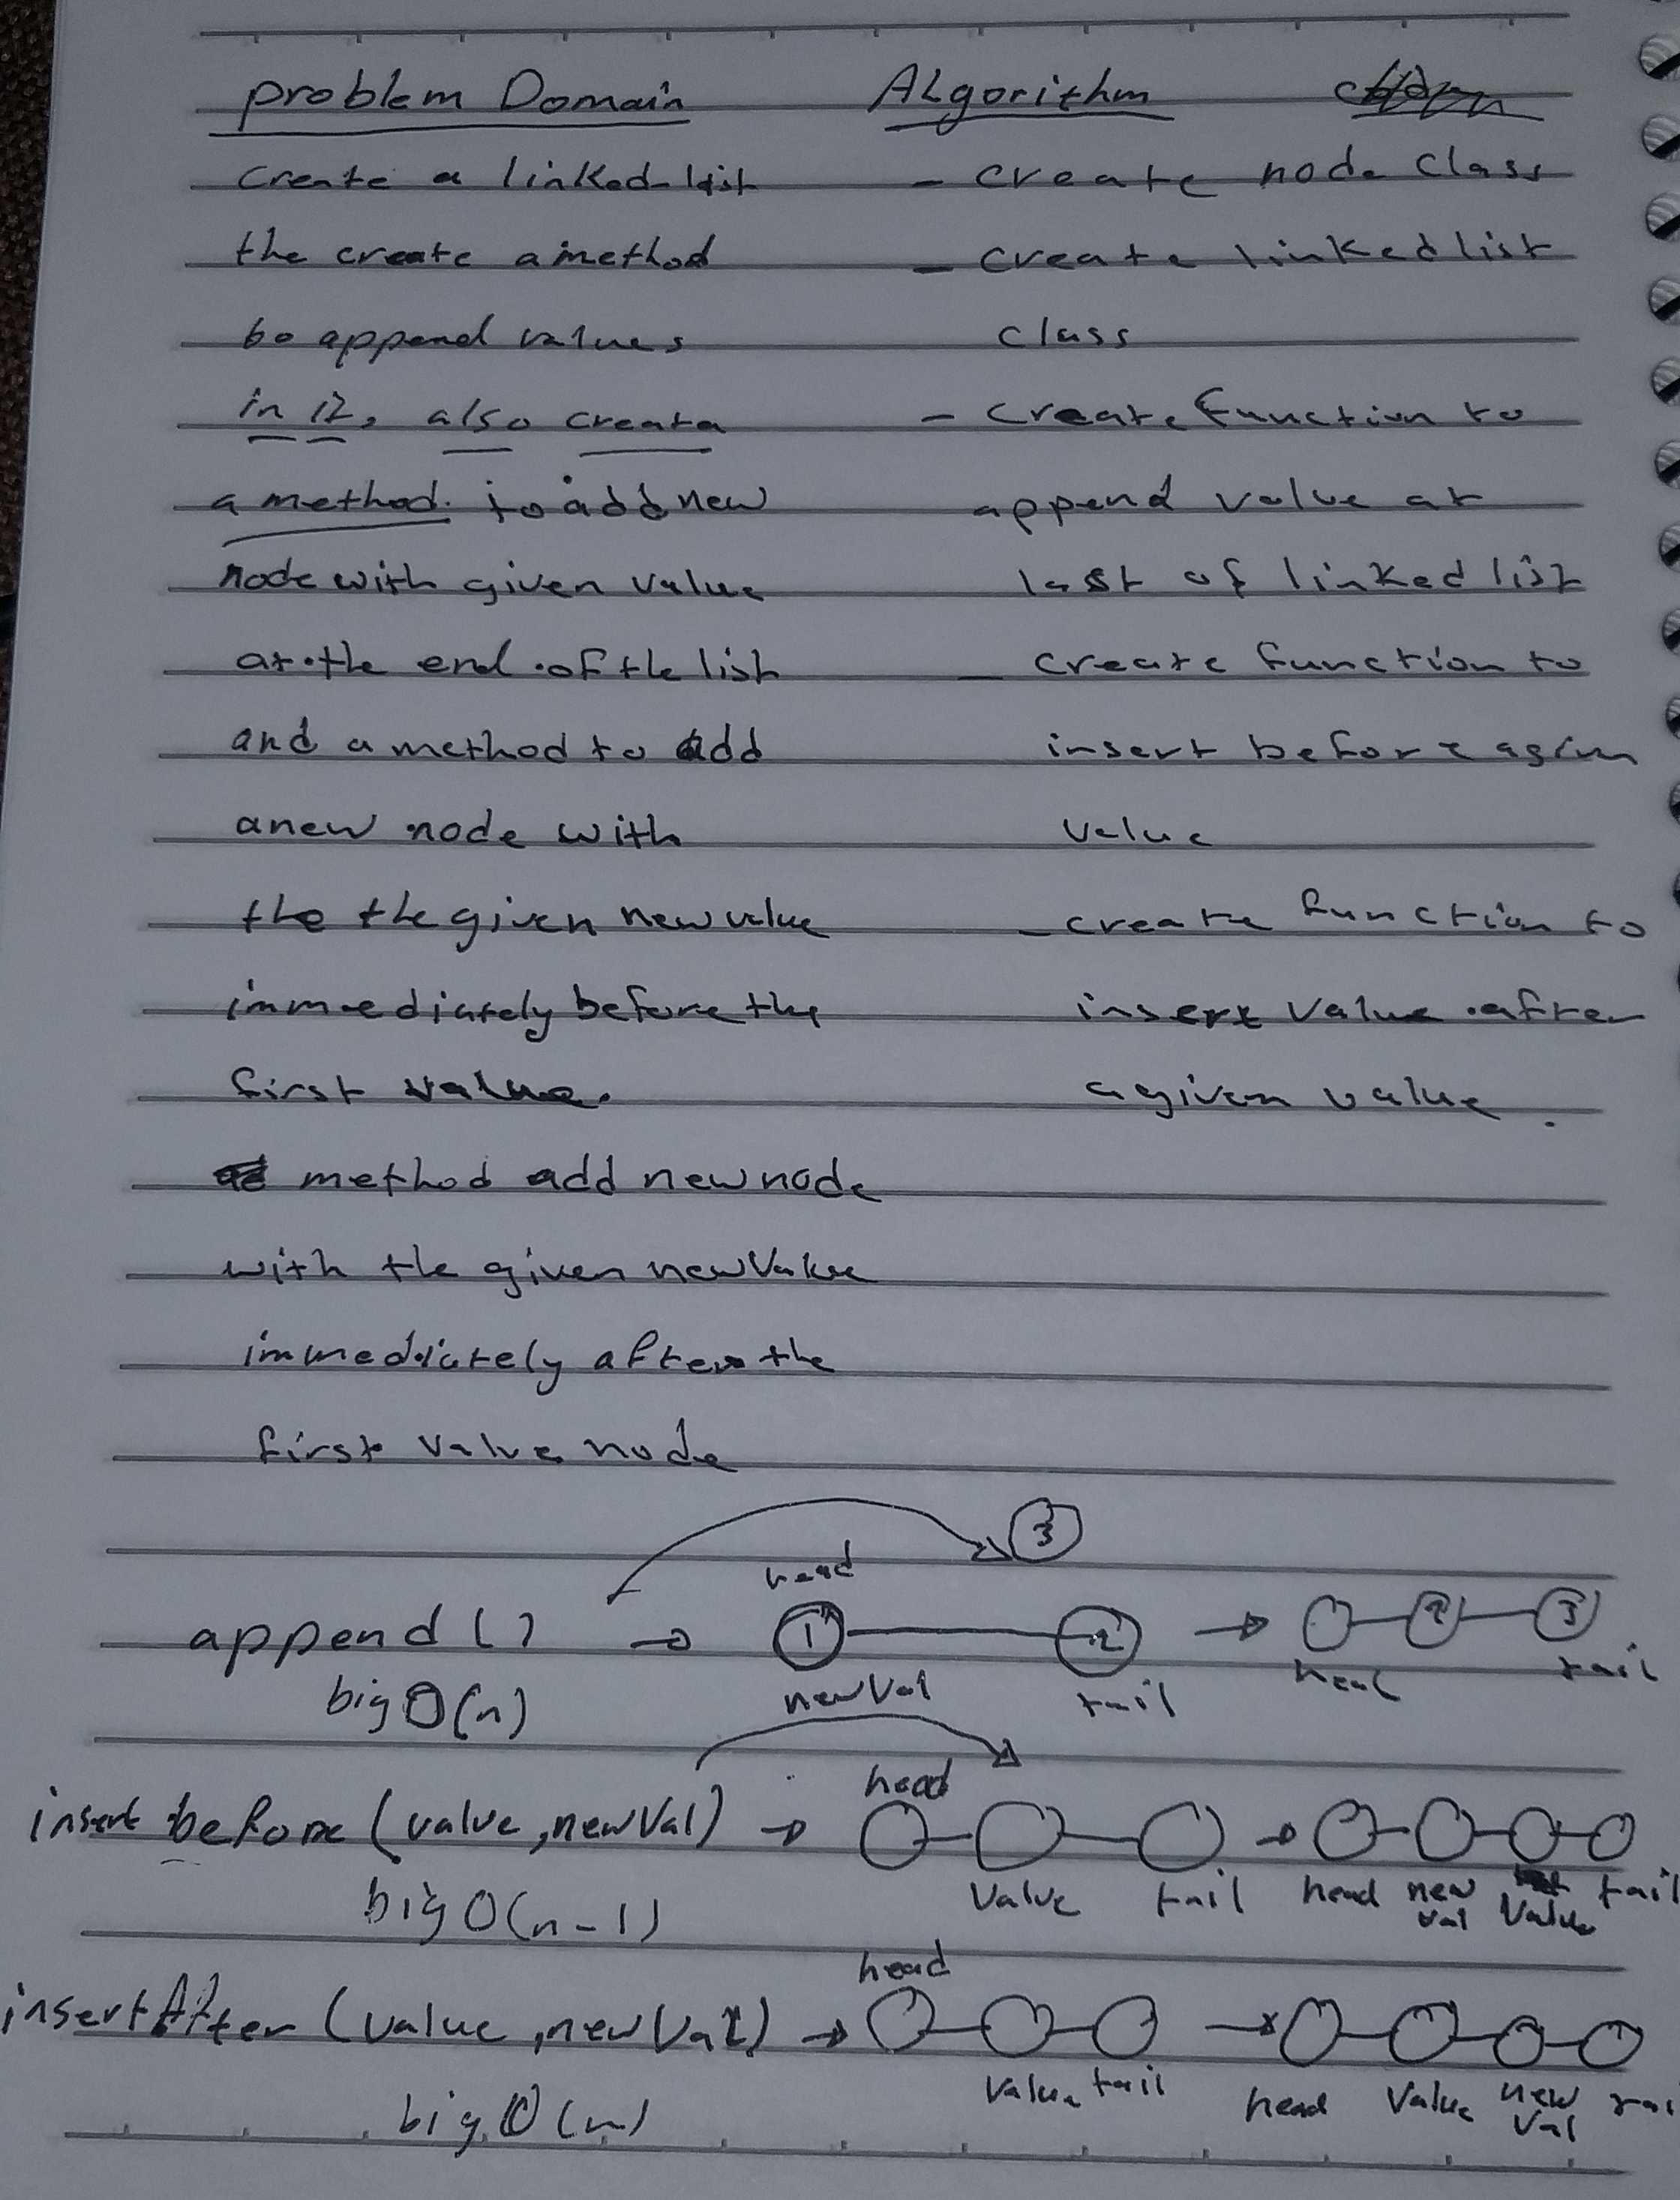 problem Domain
create a linked-list
the create a method
to append values
in it, also create
a method. to add new
node with given value
at the end of the list
and a method to add
a new node with
the the given new value
immediately before the
first value.
method add new node
with the given newValue
immediately after the
first value node
Algorithm
- create node class
- create linked list
class
- create function to
append value at
last of linked list
- create function to
insert before a given
value
- create function to
insert value after
a given value.
3
head
append ( ) → 1 2 → 2 3
newVal tail head tail
big O(n)
head
insert before (value, newVal) → →
value tail head new val value tail
big O(n-1)
head
insertAfter (value, newVal) → →
value tail head value new val tai
big O(n)